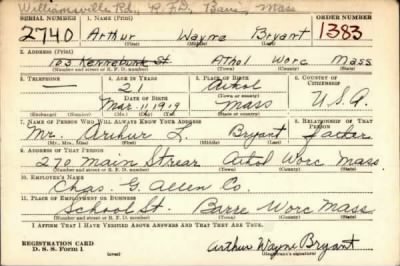 Williamsville Rd., R.F.D., Barre, Mass
SERIAL NUMBER 1. NAME (Print) ORDER NUMBER
2740 Arthur Wayne Bryant 1383
(First) (Middle) (Last)
2. ADDRESS (Print)
183 Kennebunk St. Athol Worc Mass
(Number and street or R. F. D. number) (Town) (County) (State)
3. TELEPHONE 4. AGE IN YEARS 5. PLACE OF BIRTH 6. COUNTRY OF CITIZENSHIP
— 21 Athol
DATE OF BIRTH (Town or county)
Mar. 11 1919 Mass U.S.A.
(Exchange) (Number) (Mo.) (Day) (Yr.) (State or country)
7. NAME OF PERSON WHO WILL ALWAYS KNOW YOUR ADDRESS 8. RELATIONSHIP OF THAT PERSON
Mr. Arthur L. Bryant father
(Mr., Mrs., Miss) (First) (Middle) (Last)
9. ADDRESS OF THAT PERSON
270 Main Street Athol Worc Mass.
(Number and street or R. F. D. number) (Town) (County) (State)
10. EMPLOYER'S NAME
Chas. G. Allen Co.
11. PLACE OF EMPLOYMENT OR BUSINESS
School St. Barre Worc Mass
(Number and street or R. F. D. number) (Town) (County) (State)
I AFFIRM THAT I HAVE VERIFIED ABOVE ANSWERS AND THAT THEY ARE TRUE.
REGISTRATION CARD
D. S. S. Form 1 Arthur Wayne Bryant
(Registrant's signature)